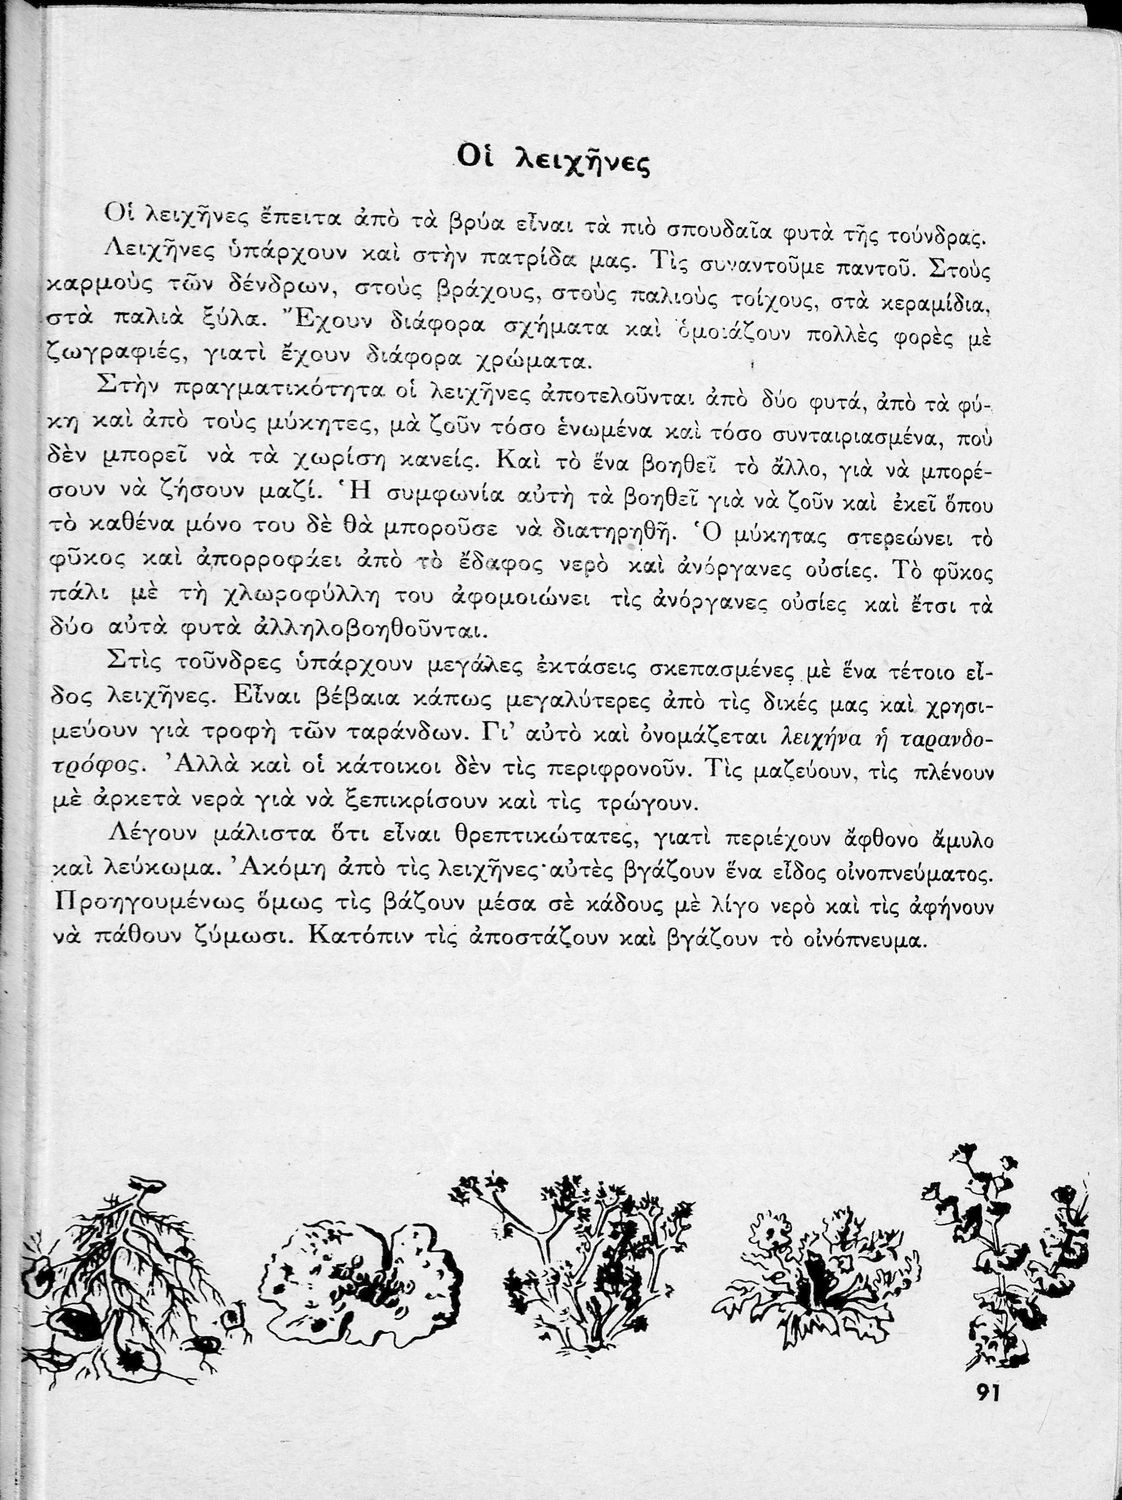 Οἱ λειχῆνες
Οἱ λειχῆνες ἔπειτα ἀπὸ τὰ βρύα εἶναι τὰ πιὸ σπουδαῖα φυτὰ τῆς τούνδρας.
Λειχῆνες ὑπάρχουν καὶ στὴν πατρίδα μας. Τὶς συναντοῦμε παντοῦ. Στοὺς
καρμοὺς τῶν δένδρων, στοὺς βράχους, στοὺς παλιοὺς τοίχους, στὰ κεραμίδια,
στὰ παλιὰ ξύλα. Ἔχουν διάφορα σχήματα καὶ ὁμοιάζουν πολλὲς φορὲς μὲ
ζωγραφιές, γιατὶ ἔχουν διάφορα χρώματα.
Στὴν πραγματικότητα οἱ λειχῆνες ἀποτελοῦνται ἀπὸ δύο φυτά, ἀπὸ τὰ φύ-
κη καὶ ἀπὸ τοὺς μύκητες, μὰ ζοῦν τόσο ἑνωμένα καὶ τόσο συνταιριασμένα, ποὺ
δὲν μπορεῖ νὰ τὰ χωρίση κανείς. Καὶ τὸ ἕνα βοηθεῖ τὸ ἄλλο, γιὰ νὰ μπορέ-
σουν νὰ ζήσουν μαζί. Ἡ συμφωνία αὐτὴ τὰ βοηθεῖ γιὰ νὰ ζοῦν καὶ ἐκεῖ ὅπου
τὸ καθένα μόνο του δὲ θὰ μποροῦσε νὰ διατηρηθῆ. Ὁ μύκητας στερεώνει τὸ
φῦκος καὶ ἀπορροφάει ἀπὸ τὸ ἔδαφος νερὸ καὶ ἀνόργανες οὐσίες. Τὸ φῦκος
πάλι μὲ τὴ χλωροφύλλη του ἀφομοιώνει τὶς ἀνόργανες οὐσίες καὶ ἔτσι τὰ
δύο αὐτὰ φυτὰ ἀλληλοβοηθοῦνται.
Στὶς τοῦνδρες ὑπάρχουν μεγάλες ἐκτάσεις σκεπασμένες μὲ ἕνα τέτοιο εἶ-
δος λειχῆνες. Εἶναι βέβαια κάπως μεγαλύτερες ἀπὸ τὶς δικές μας καὶ χρησι-
μεύουν γιὰ τροφὴ τῶν ταράνδων. Γι' αὐτὸ καὶ ὀνομάζεται λειχήνα ἡ ταρανδο-
τρόφος. Ἀλλὰ καὶ οἱ κάτοικοι δὲν τὶς περιφρονοῦν. Τὶς μαζεύουν, τὶς πλένουν
μὲ ἀρκετὰ νερὰ γιὰ νὰ ξεπικρίσουν καὶ τὶς τρώγουν.
Λέγουν μάλιστα ὅτι εἶναι θρεπτικώτατες, γιατὶ περιέχουν ἄφθονο ἄμυλο
καὶ λεύκωμα. Ἀκόμη ἀπὸ τὶς λειχῆνες αὐτὲς βγάζουν ἕνα εἶδος οἰνοπνεύματος.
Προηγουμένως ὅμως τὶς βάζουν μέσα σὲ κάδους μὲ λίγο νερὸ καὶ τὶς ἀφήνουν
νὰ πάθουν ζύμωσι. Κατόπιν τὶς ἀποστάζουν καὶ βγάζουν τὸ οἰνόπνευμα.
91